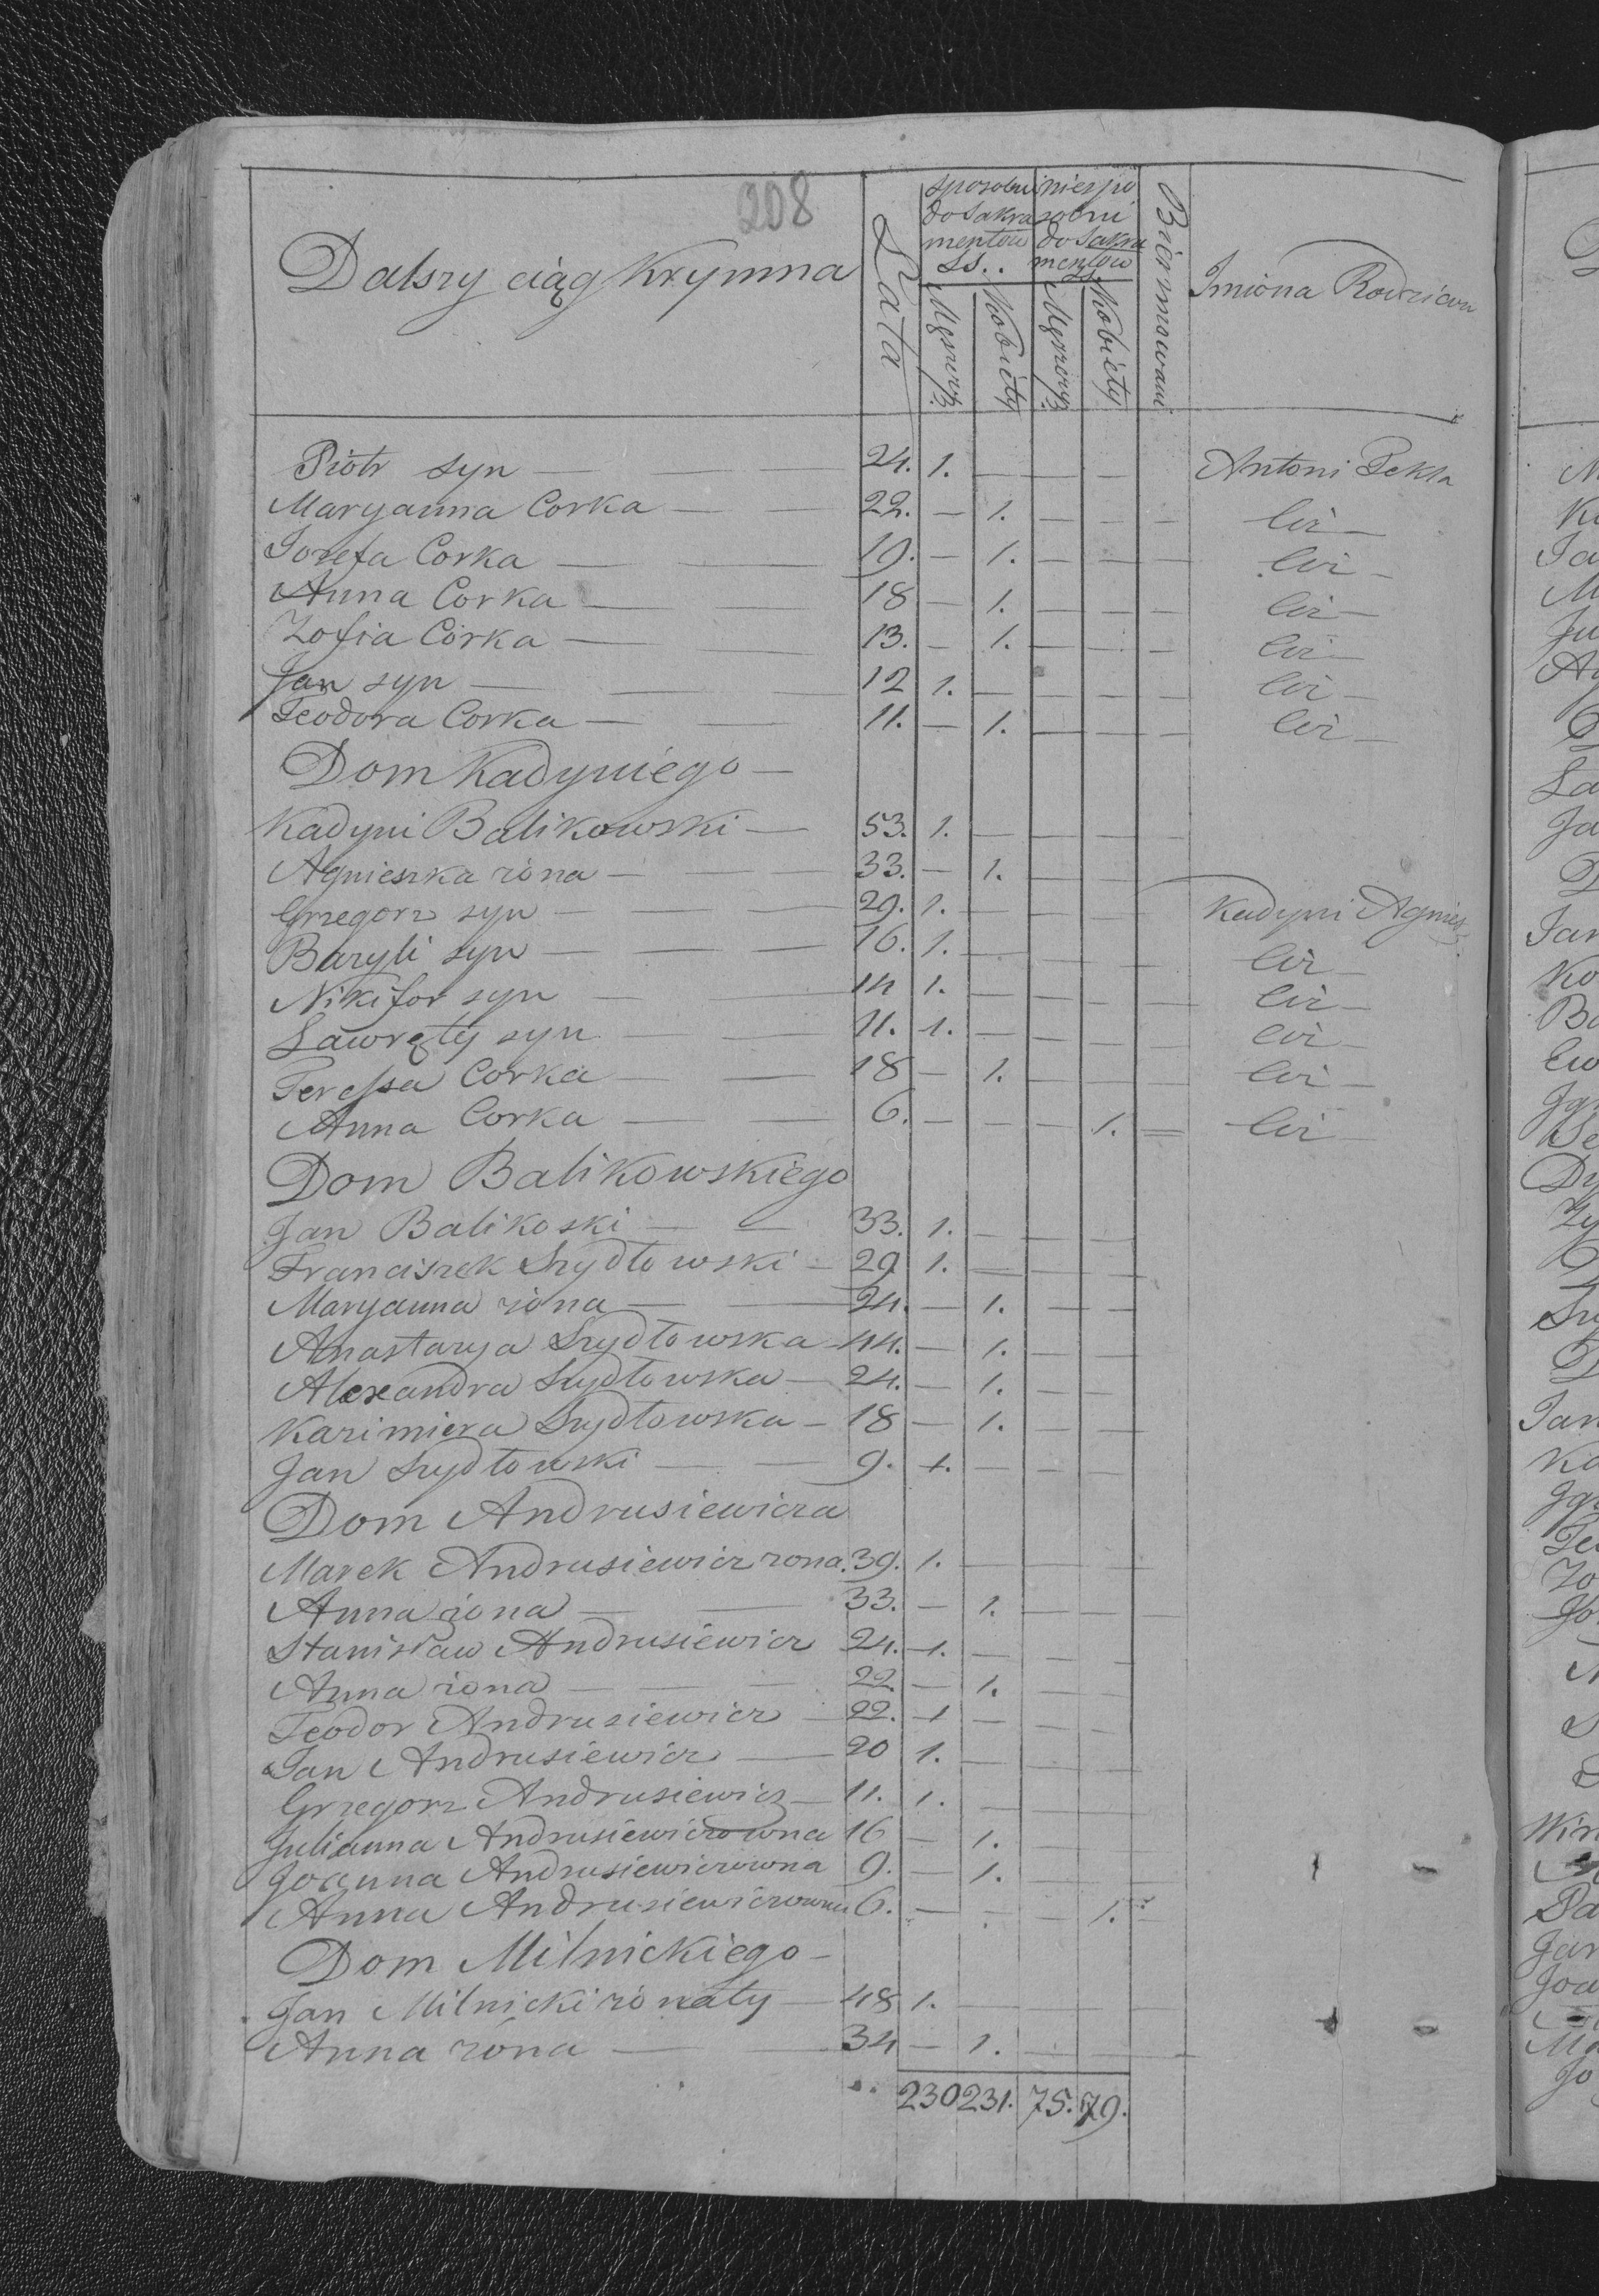 208
Dalszy ciąg Krymna
Lata
sposobni do Sakramentow SS..
niesposobni do Sakramentow SS.
Męszczyź.
Kobiety
Męszczyź.
Kobiety
Biermowani
Imiona Rodzicow
Piotr syn — 24. 1. — — — Antoni Tekla
Maryanna Corka — 22. — 1. — — — Ciż —
Jozefa Corka — 19. — 1. — — — Ciż —
Anna Corka — 18 — 1. — — — Ciż —
Zofia Córka — 13. — 1. — — — Ciż —
Jan syn — 12 1. — — — — Ciż —
Teodora Corka — 11. — 1. — — — Ciż —
Dom Kadyniego —
Kadyni Balikowski — 53. 1. — — —
Agnieszka żona — 33. — 1. — —
Grzegorz syn — 29. 1. — — — Kadyni Agnies.
Bazyli syn — 16. 1. — — — — Ciż —
Nikifor syn — 14 1. — — — — Ciż —
Lawręty syn — 11. 1. — — — — Ciż —
Teressa Corka — 18 — 1. — — — Ciż —
Anna Corka — 6. — — — 1. — Ciż —
Dom Balikowskiego
Jan Balikoski — 33. 1. — — —
Franciszek Szydłowski — 29 1. — — —
Maryanna żona — 24. — 1. — —
Anastazya Szydłowska — 44. — 1. — —
Alexandra Szydłowska — 24. — 1. — —
Kazimiera Szydłowska — 18 — 1. — —
Jan Szydłowski — 9. 1. — — —
Dom Andrusiewicza
Marek Andrusiewicz zona. 39. 1. — — — —
Anna żona — 33. — 1. — — —
Stanisław Andrusiewicz 24. 1. — — —
Anna żona — 22. — 1. — —
Teodor Andrusiewicz — 22. 1 — — —
Jan Andrusiewicz — 20 1. — — —
Grzegorz Andrusiewicz — 11. 1. — — — —
Julianna Andrusiewiczowna 16 — 1. — — —
Joanna Andrusiewiczowna 9. — 1. — — —
Anna Andrusiewiczowna 6. — — — 1.
Dom Milnickiego —
Jan Milnicki żonaty — 48 1. — — — —
Anna żona — 34 — 1. — — —
230 231. 75. 79.